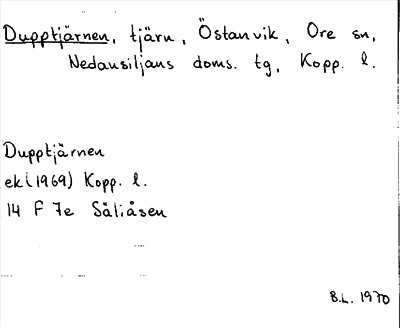 Dupptjärnen, tjärn, Östanvik, Ore sn,
Nedansiljans doms. tg, Kopp. l.
Dupptjärnen
ek (1969) Kopp. l.
14 F 7e Säliåsen
B.L. 1970